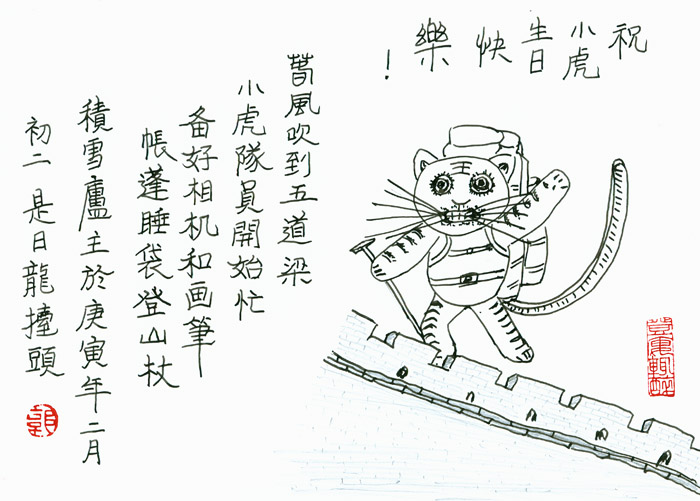 祝小虎生日快樂!
萅風吹到五道梁
小虎隊員開始忙
备好相机和画筆
帳蓬睡袋登山杖
積雪廬主於庚寅年二月
初二 是日龍擡頭
王